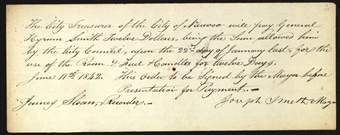 The City Treasurer of the City of Nauvoo will pay General
Hyrum Smith Twelve Dollars, being the Sum allowed him
by the City Council, upon the 22nd day of January last, for the
use of the Room, & Fuel & Candles for twelve Days.
June 11th 1842. This order to be Signed by the Mayor before
Presentation for Payment.
James Sloan, Recorder. Joseph Smith Mayor